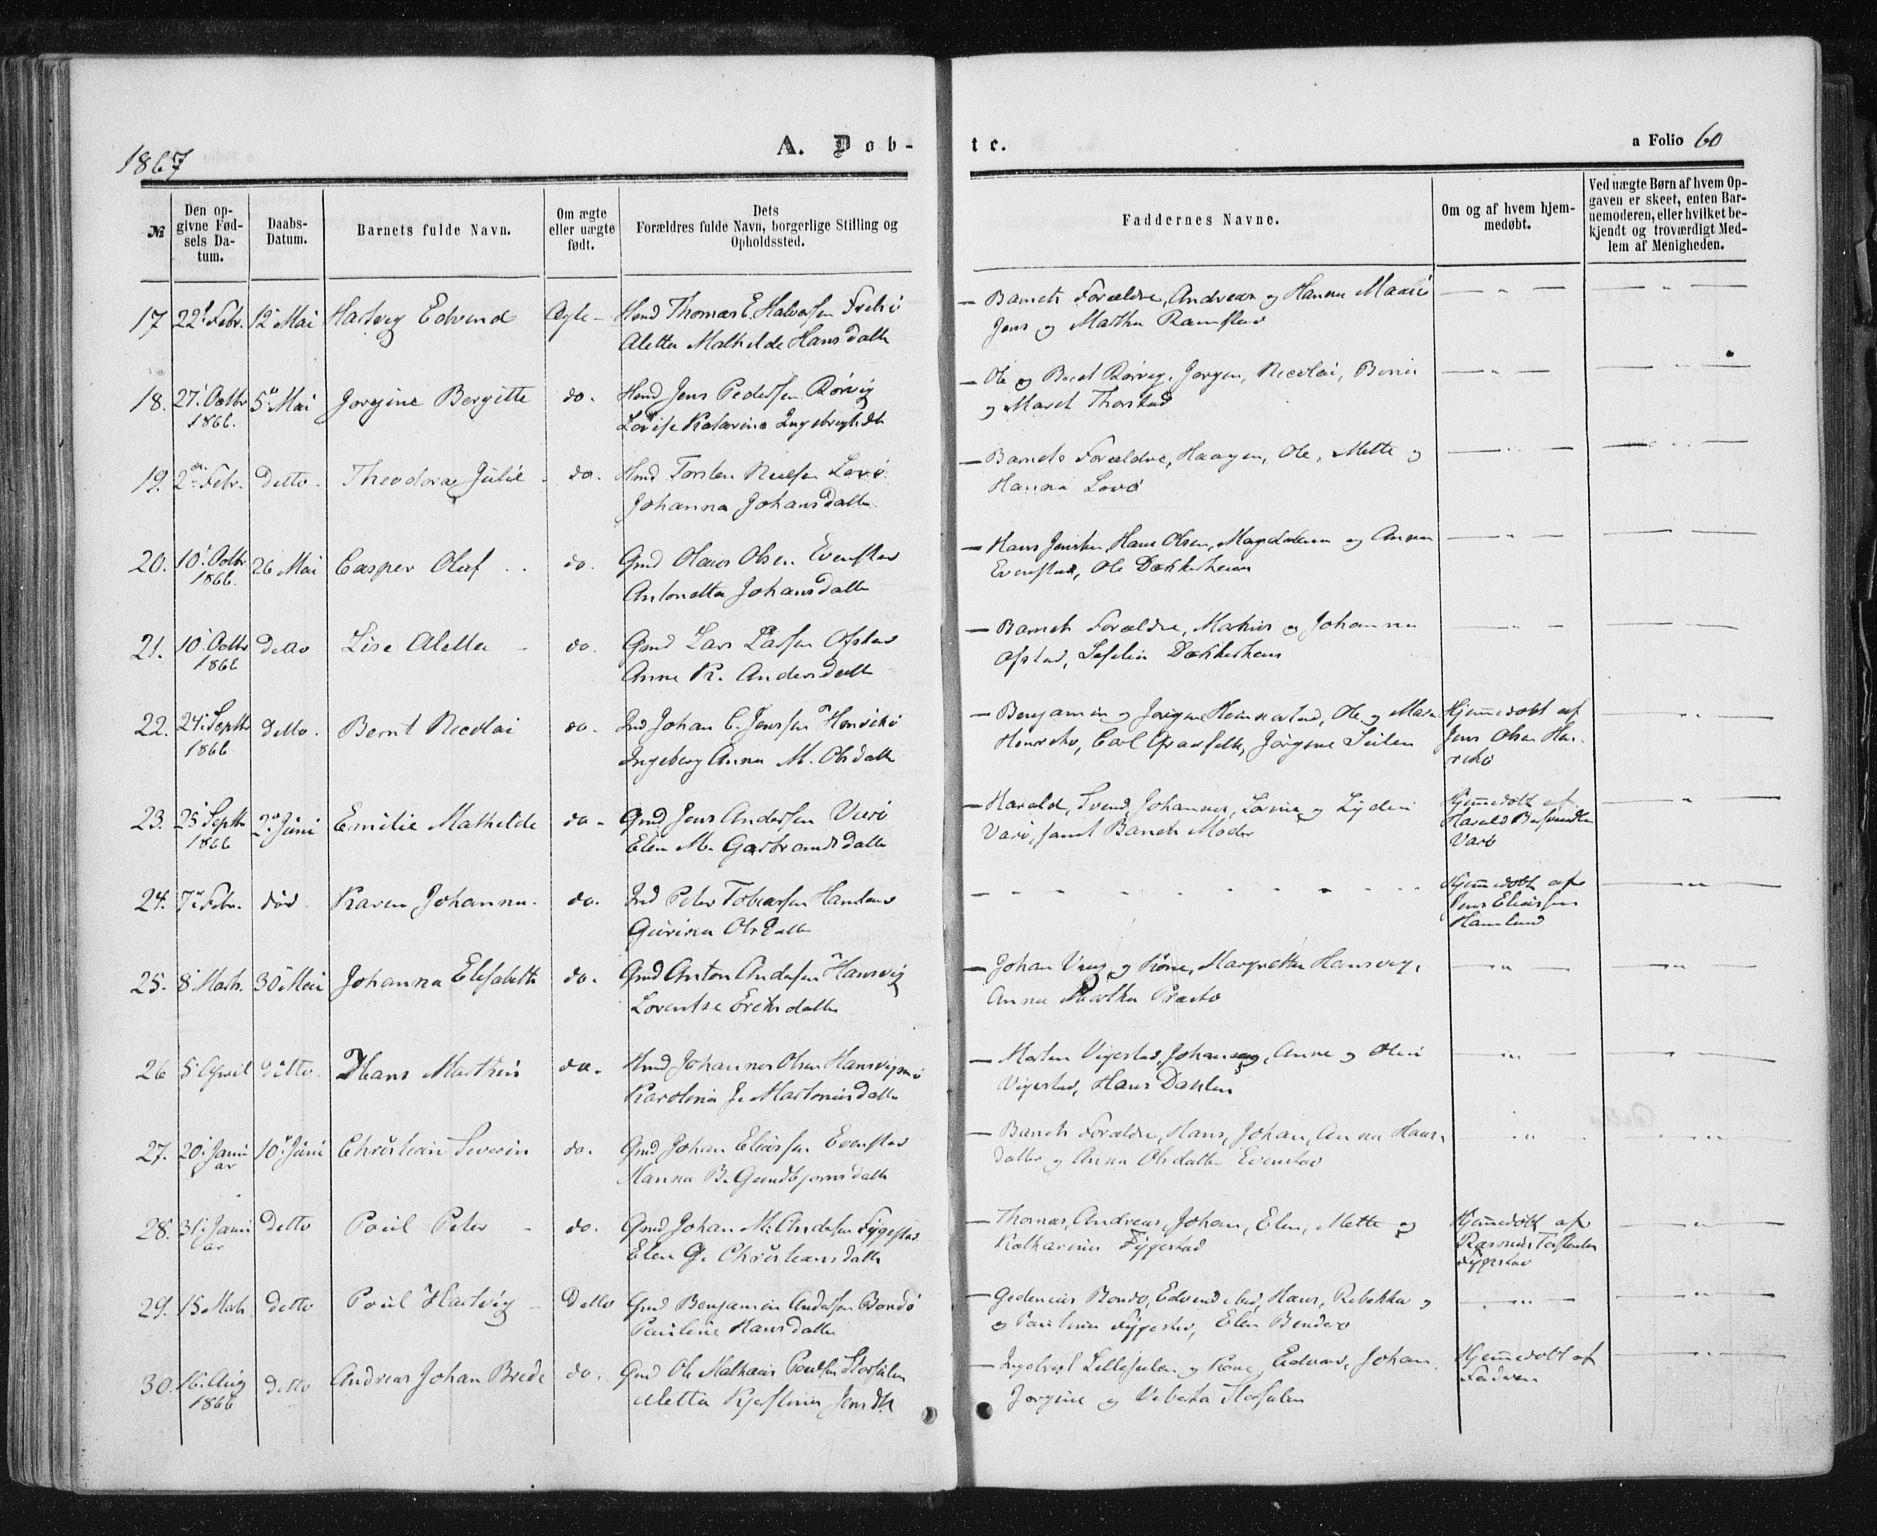 1867
A. Døb-
te.
a Folio 60
№
Den op-
givne Fød-
sels Da-
tum.
Daabs-
Datum.
Barnets fulde Navn.
Om ægte
eller uægte
født.
Dets
Forældres fulde Navn, borgerlige Stilling og
Opholdssted.
Faddernes Navne.
Om og af hvem hjem-
medøbt.
Ved uægte Børn af hvem Op-
gaven er skeet, enten Bar-
nemoderen, eller hvilket be-
kjendt og troværdigt Med-
lem af Menigheden.
17 22 Febr. 12 Mai Hartvig Edvend Ægte Hmd Thomas E. Halvorsen
Aletta Mathilde Hansdatter
— Barnets Forældre, Andreas og Hanna
Jens og Martha Ramstad
18. 27 Octbr 5 Mai Jorgine Bergitte do. Hmd Jens Pedersen Rörvig
1866.
Lovise Katarina Ingebrigtsdtr
— Ole og Berit Rörvig, Jörgen, Nicolai,
og Maret Thorstad
19. 2 Febr. Detto Theodora Julie do. Hmd Torsten Nielsen Lovö
Johanna Johansdatter
— Barnets Forældre, Haagen, Ole, Mette og
Hanna Lovö
20. 10 Octbr 26 Mai Casper Oluf do. Gmd Olaus Olsen Evenstad
1866.
Antonetta Johansdatter
— Hans Hans Olsen, Magdalena og Anna
Evenstad, Ole Dekkerheim
21. 10 Octbr detto Lise Aletta do. Gmd Lars Larsen Ofstad
1866
Anne K. Andersdatter
— Barnets Forældre, Mathias og Johanna
Ofstad,
22. 24 Septbr detto. Bernt Nicolai do. Ind Johan C. Jenssen Henrikö
1866
Ingeborg Anna M. Olsdatter
— Benjamin og Ole og
Carl Jörgine
Hjemmedöbt af
Jens Olsen
23. 25 Septbr 2 Juni Emilie Mathilde do. Gmd Jens Andersen Varö
1866
Elen M. Garbrandsdatter
— Harald, Svend, Johannes, Lovise og
Varö, samt Barnets Moder
Hjemmedöbt af
Harald
Varö
24. 7 Febr. död Karen Johanna do. Ind Peter Tobiassen Hamland
Gurina Olsdatter
Hjemmedöbt af
Jens Eliassen
Hamland
25. 8 Marts. 30 Mai Johanna Elisabeth do. Gmd Anton Andersen Hansvig
Lorentse Eriksdatter
— Johan og Kone, Margretha Hansvig,
Anna Martha
26 5 April detto Hans Martin do. Hmd Johannes Olsen
Karolina J. Martinusdatter
— Morten Vigestad, Johannes, Anne og
Vigestad, Hans Dahlen
27. 20 Janu 10 Juni Christian Severin do. Gmd Johan Eliassen Evenstad
ar
Hanna B. Gundbjornsdatter
— Barnets Forældre, Hans, Johan, Anna Hans
datter og Anna Olsdatter Evenstad
28. 31 Janu detto Poul Peter do. Gmd Johan M. Andersen Fygestad
ar
Elen G. Christiansdatter
— Thomas, Andreas, Johan, Elen, Mette og
Katharina Fygestad
Hjemmedöbt af
Rasmus Torstensen
Fygestad
29. 15 Marts. detto Poul Hartvig Detto Gmd Benjamin Andersen Bondö
Pauline Hansdatter
— Gedenius Bondö, Hans, Rebekka og
og Paulina Fygestad, Elen Bondö
30. 16 Aug detto Andreas Johan Brede do. Gmd Ole Mathias Poulsen Storsulen
1866
Aletta Kjestina Jensdtr
— Ingebrigt Lillesulen og Kone, Edvard, Johan,
Jorgine og Vibeka Storsulen
Hjemmedöbt af
Faderen